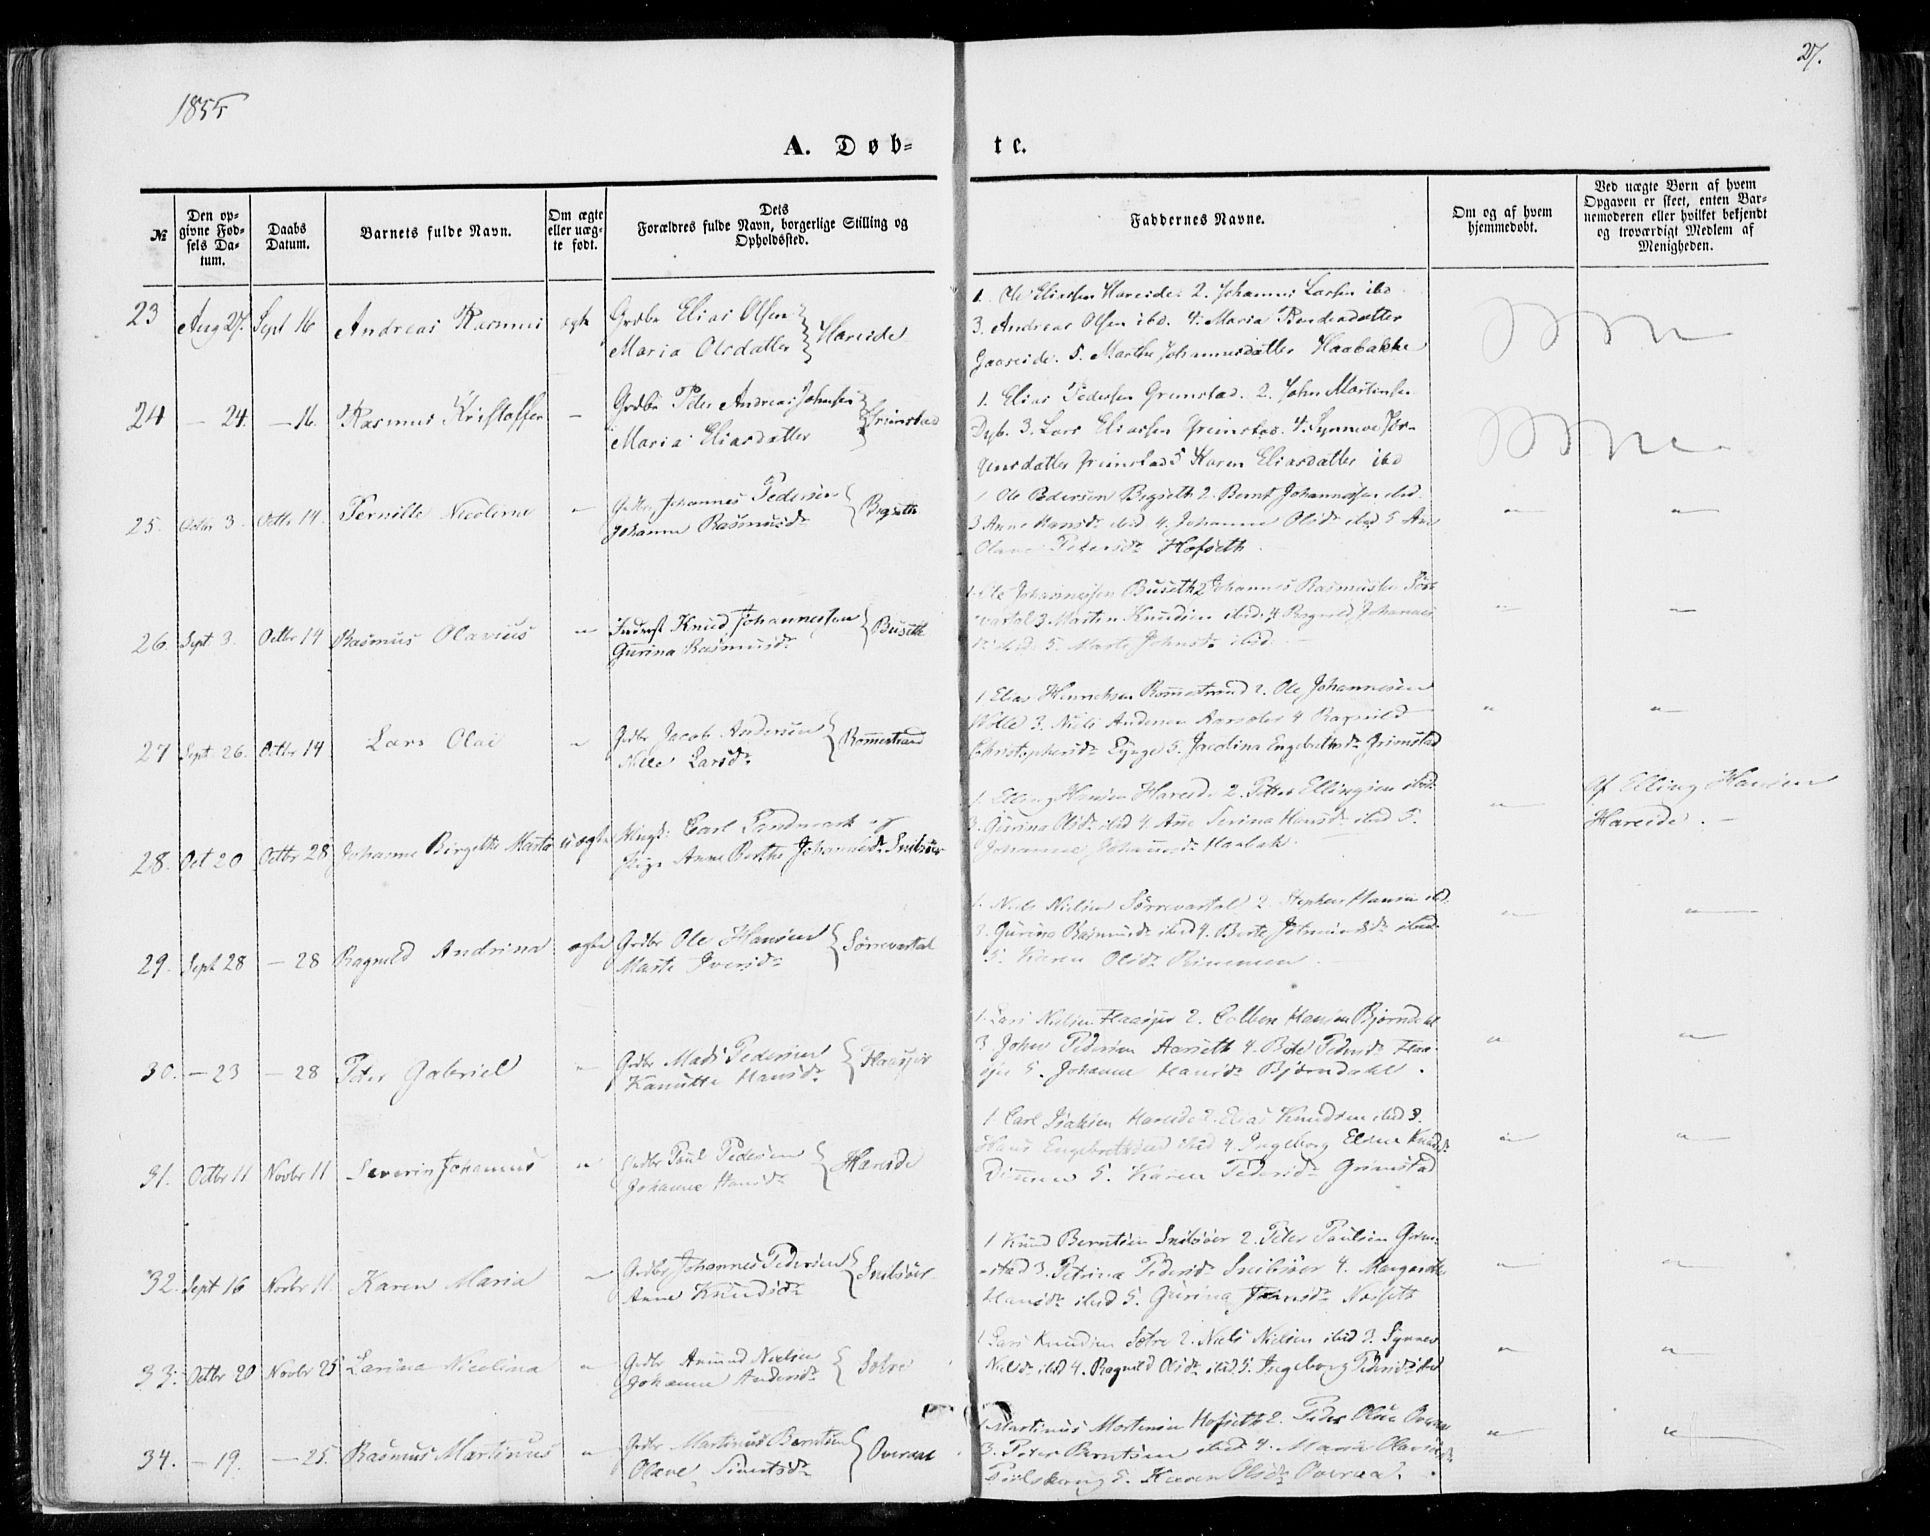 27.
1855
A. Døb-
te.
№
Den op-
givne Fød-
sels Da-
tum.
Daabs
Datum.
Barnets fulde Navn.
Om ægte
eller uæg-
te født.
Dets
Forældres fulde Navn, borgerlige Stilling og
Opholdssted.
Faddernes Navne.
Om og af hvem
hjemmedøbt.
Ved uægte Børn af hvem
Opgaven er skeet, enten Bar-
nemoderen eller hvilket bekjendt
og troværdigt Medlem af
Menigheden.
23 Aug 27. Sept 16 Andreas Rasmus ægte Grdbr Elias Olsen
Maria Olsdatter } Hareide
1. Ole Eliassen Hareide. 2. Johannes Larsen ibd
3. Andreas Olsen ibd. 4. Maria
5. Marthe Johannesdatter Haabakke
24 — 24. — 16. Rasmus Kristoffer — Grdbr Peder Andreas Johnsen
Maria Eliasdatter } Grimstad
1. Elias Pedersen Grimstad. 2. John Martinsen
Dyb. 3. Lars Eliassen Grimstad. 4. Synneve Jør-
gensdatter Grimstad 5 Karen Eliasdatter ibd
25. Octbr 3. Octbr 14. Pernille Nicoline " Johannes Pedersen
Johanne Rasmusdr } Bigseth
1 Ole Pedersen Bigseth 2. Bernt Johannessen ibid.
3 Anne Hansdr ibid 4. Johanne Olsdr ibid 5 Ane
Olave Pedersdr Hofseth
26. Sept. 3. Octbr 14 Rasmus Olavius " Inderst Knud Johannessen
Gurina Rasmusdr } Buseth
1. Ole Johannessen Buseth 2 Johannes Rasmussen Sørre-
vartal 3. Morten Knudsen ibid. 4 Ragnild Johannes
dr ibid. 5. Marte Johnsdr ibid.
27 Sept. 26. Octbr 14 Lars Olai " Grdbr Jacob Andersen
Nille Larsdr } Rommestrand
1 Elias Henrichsen Rommestrand 2. Ole Johannesen
3. Niels Andersen 4 Ragnild
Christophersdr 5. Jacolina Engebrethsdr Grimstad
28. Oct 20 Octbr 28 Johanne Birgitte Marta uægte Ungk. Carl Landmark og
Pige Anne Berthe Johannesdr Snibsøer
1. Elling Hansen Hareide 2. Petter Ellingsen ibid.
3. Gurina Olsdr ibid 4. Ane Serina Hansdr ibid 5.
Johanne Johansdr Haabak.
Af Elling Hansen
Hareide.
29. Sept 28 — 28 Ragnild Andrina ægte Grdbr Ole Hansen
Marte Iversdr } Sørrevartal
1. Niels Nielsen Sørrevartal 2. Stephen Hansen ibd.
3. Gurina Rasmusdr ibid 4. Berte ibid.
5. Karen Olsdr
30. — 23 — 28 Peter Gabriel " Grdbr Mads Pedersen
Kanutte Hansdr } Flaasjør
1. Lars Nielsen Flaasjør 2. Colben Hansen Bjørndahl
3 Johan Pedersen Aarseth 4. Berte Pedersdr Flaa-
sjør 5. Johanne Hansdr Bjørndahl.
31. Octbr 11 Novbr 11 Severin Johannes " Grdbr Poul Pedersen
Johanne Hansdr } Hareide
1 Carl Isaksen Hareide 2. Elias Knudsen ibid 3.
Hans Engebrethsen ibid 4 Ingeborg Eline Knudsdr
5. Karen Pedersdr Grimstad
32. Sept 16 Novbr 11. Karen Maria " Grdbr Johannes Pedersen
Anne Knudsdr } Snibsøer
1 Knud Berntsen Snibsøer 2. Peter Paulsen Grim-
stad 3. Petrina Pedersdr Snibsøer 4. Margarethe
Hansdr ibid 5. Gurina
33. Octbr 20 Novbr 25 Larine Nicolina " Grdbr Amund Nielsen
Johanne Andersdr } Sætre
1 Lars Knudsen Sætre 2. Niels Nielsen ibid 3. Synnev
Nielsdr ibid 4. Ragnild Olsdr ibid 5. Ingeborg Pedersdr ibid
34. — 19. — 25. Rasmus Martinus " Grdbr Martinus Berntsen
Olave Sivertsdr } Overaae
1 Martinus Mortensen Hofseth 2. Peder Olsen Overaae
3. Peter Berntsen ibid 4. Maria
5. Karen Olsdr Overaa.